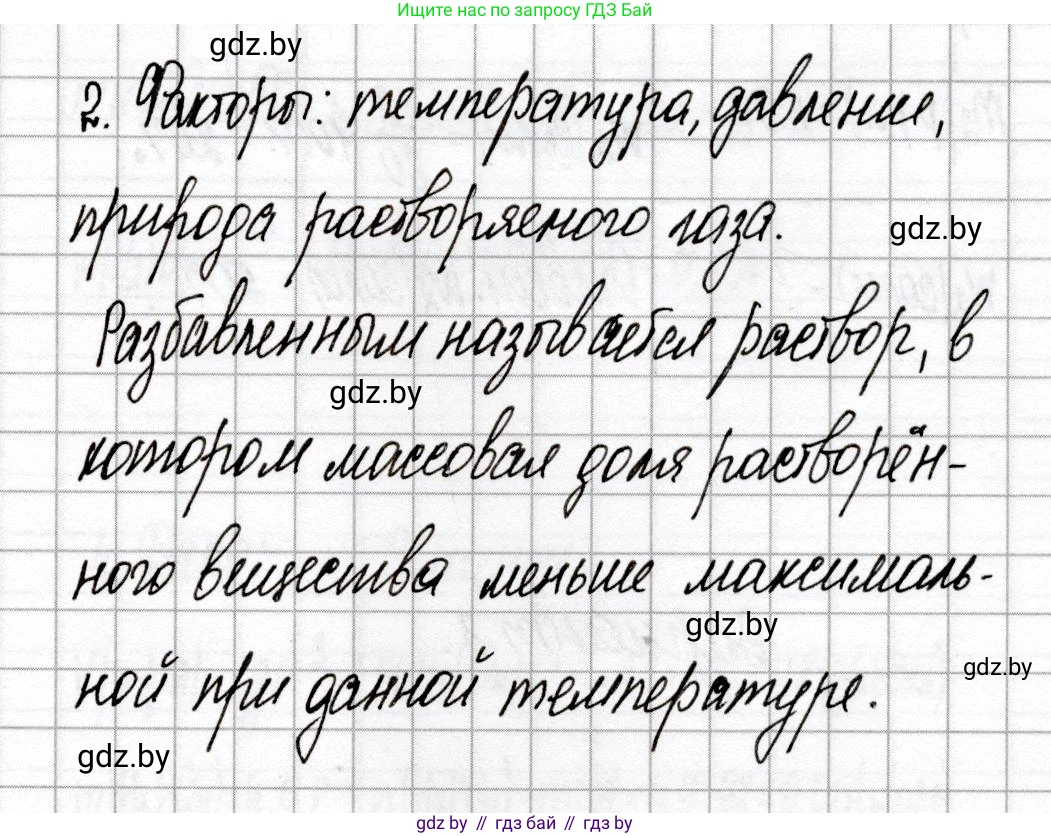 Ищите нас по запросу ГДЗ Бай
gdz.by
2. Факторы: температура, давление,
природа растворяемого газа.
gdz.by
Разбавленным называется раствор, в
gdz.by
котором массовая доля растворён-
ного вещества меньше максималь-
gdz.by
ной при данной температуре.
gdz.by
gdz.by
gdz.by // гдз бай // гдз by